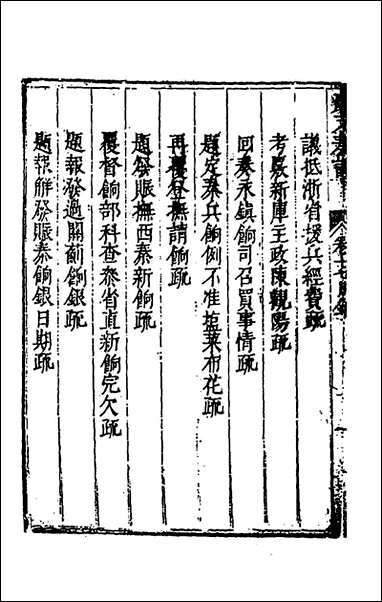 議抵浙省援兵經費疏
考覈新庫主政陳觀陽疏
回奏永鎮餉司召買事情疏
題定秦兵餉例不准鹽菜布花疏
再覆登撫請餉疏
題發賑撫西秦新餉疏
覆督餉部科查叅省直新餉完欠疏
題報發過關薊餉銀疏
題報解發賑秦餉銀日期疏